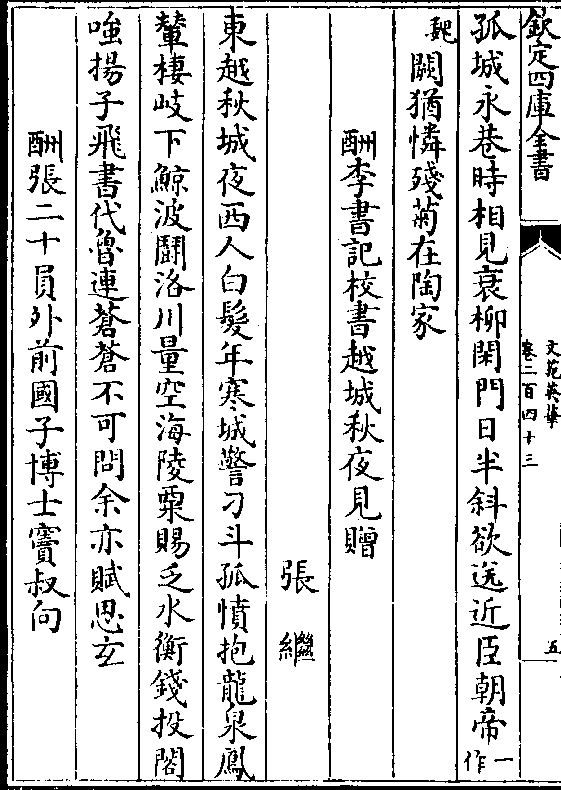 欽定四庫全書
文苑英華
卷二百四十三
五
孤城永巷時相見衰柳閑門日半斜欲送近臣朝帝一作
魏闕猶憐殘菊在陶家
酬李書記校書越城秋夜見贈
張繼
東越秋城夜西人白髮年寒城警刁斗孤憤抱龍泉鳳
輦棲岐下鯨波鬬洛川量空海陵粟賜乏水衡錢投閣
嗤揚子飛書代魯連蒼蒼不可問余亦賦思玄
酬張二十員外前國子博士竇叔向